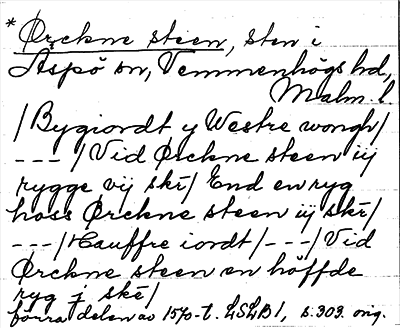 * Ørckne steen, sten i
Aspö sn, Vemmenhögs hd,
Malm. l
/Bygiordt y Westre wongh/
--- /Vid Ørckne steen iij
rygge vij skē/ End en ryg
hoss Ørckne steen iij skē/
---/Hauffre iordt/---/Vid
Ørckne steen en höffde
ryg j skē/
förra delen av 1570-t. LSLB1, s. 303. orig.